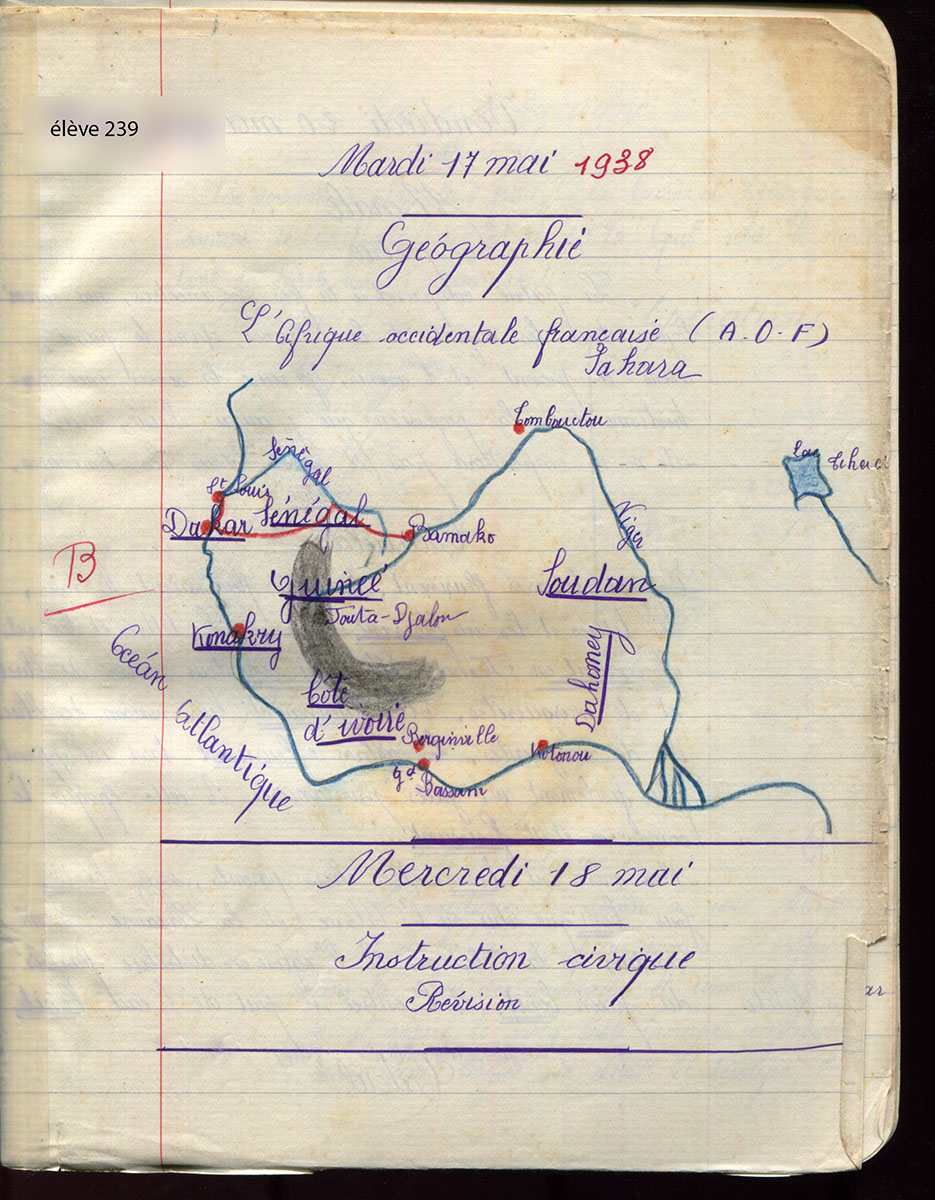 élève 239
Mardi 17 mai 1938
Géographie
L'Afrique occidentale française (A.O.F)
Sahara
Tombouctou
Sénégal
Lac Tchad
St Louis
Dakar
Sénégal
Bamako
Niger
B
Guinée
Soudan
Fouta-Djalon
Konakry
Océan
Atlantique
Dahomey
Côte
d'ivoire
Berginville
Kotonou
gd
Bassam
Mercredi 18 mai
Instruction civique
Révision
ar